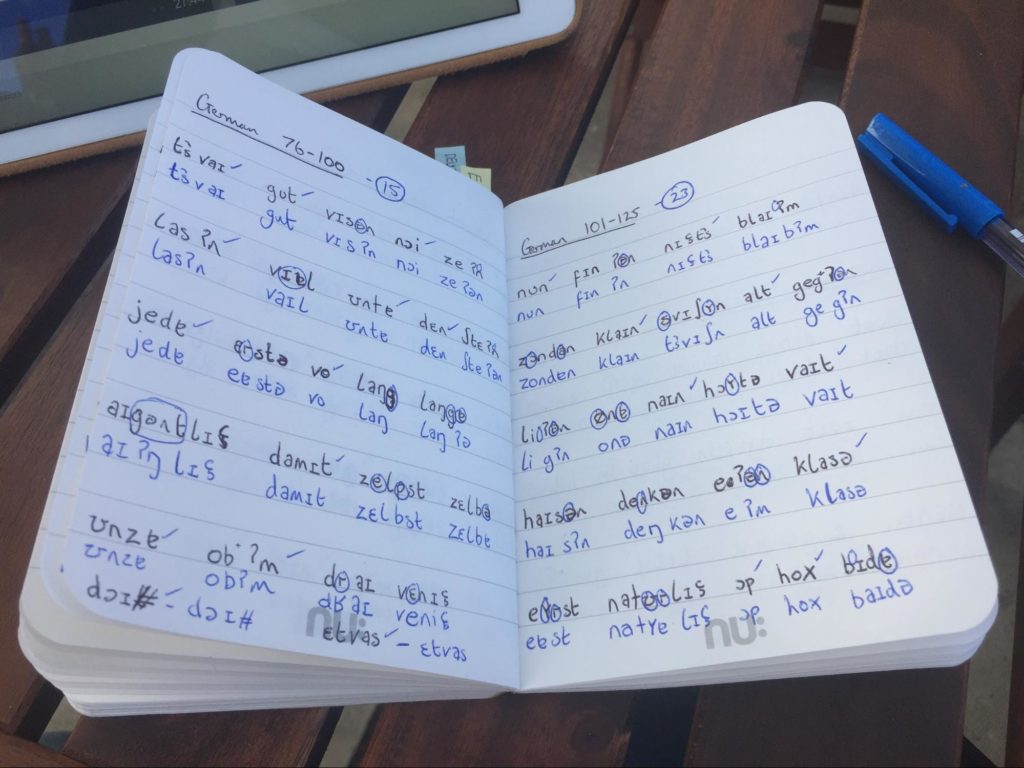 German 76-100 - 15
tsvaɪ✓ gut✓ vɪsən nɔi✓ zeʔʀ
tsvaɪ gut vɪsʔn nɔi zeʔən
lasʔn✓ vɪəl ʊnte✓ den✓ ʃteʔʀ
lasʔn vaɪl ʊnte dɛn ʃteʔən
jedɐ✓ ɐrstə vo✓ laŋg laŋgɐ
jedɐ eɐstə vo laŋ laŋʔə
aɪgəntlɪɕ damɪt✓ zɛlɐst zɛlbə
aɪʔŋlɪɕ damɪt zɛlbst zɛlbɐ
ʊnzɐ✓ obʔm✓ draɪ vɛnɪɕ
ʊnzɐ obʔm dʁaɪ venɪɕ
dɔɪ#✓ - dɔɪ# ɛtvas✓ - ɛtvas
German 101-125 - 23
nun✓ fɪnʔən nɪɕts✓ blaɪʔm
nun fɪnʔn nɪɕts blaɪbʔm
zəndən klaɪn✓ svɪʃən alt✓ gegʔən
zonden klaɪn tsvɪʃn alt gegʔn
liʔən ənɐ naɪn✓ hɔrtə vaɪt✓
ligʔn onə naɪn hɔɪtə vaɪt
haɪsən denkən eɐʔən klasə✓
haɪsʔn deŋkən eʔm klasə
eʁost natɐɐlɪɕ ɔp✓ hox✓ bidɐ
eɐst natyɐlɪɕ ɔp hox baɪdə
nu:
nu: